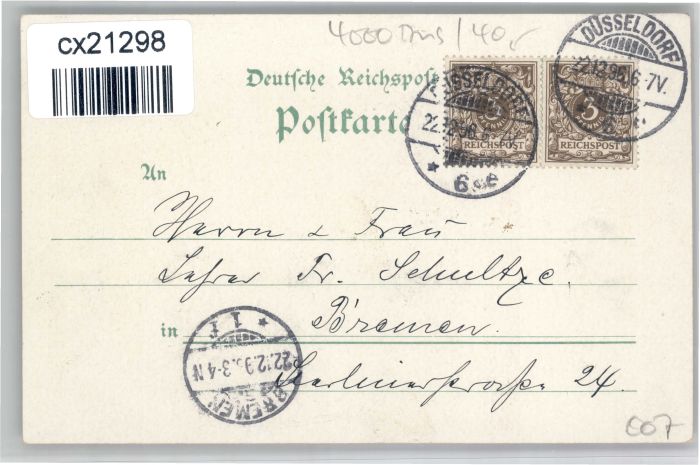 cx21298
4000 / 40,-
Deutsche Reichspost
Postkarte
DÜSSELDORF
22.12.96. 6-7V.
* 6 *
DÜSSELDORF
22.12.96. 6-7V.
6
3 REICHSPOST
3 REICHSPOST
An
Herrn & Frau
Lehrer Fr. Schultze.
in Bremen.
24.
BREMEN
22.12.9 3-4N
* 1 F *
007